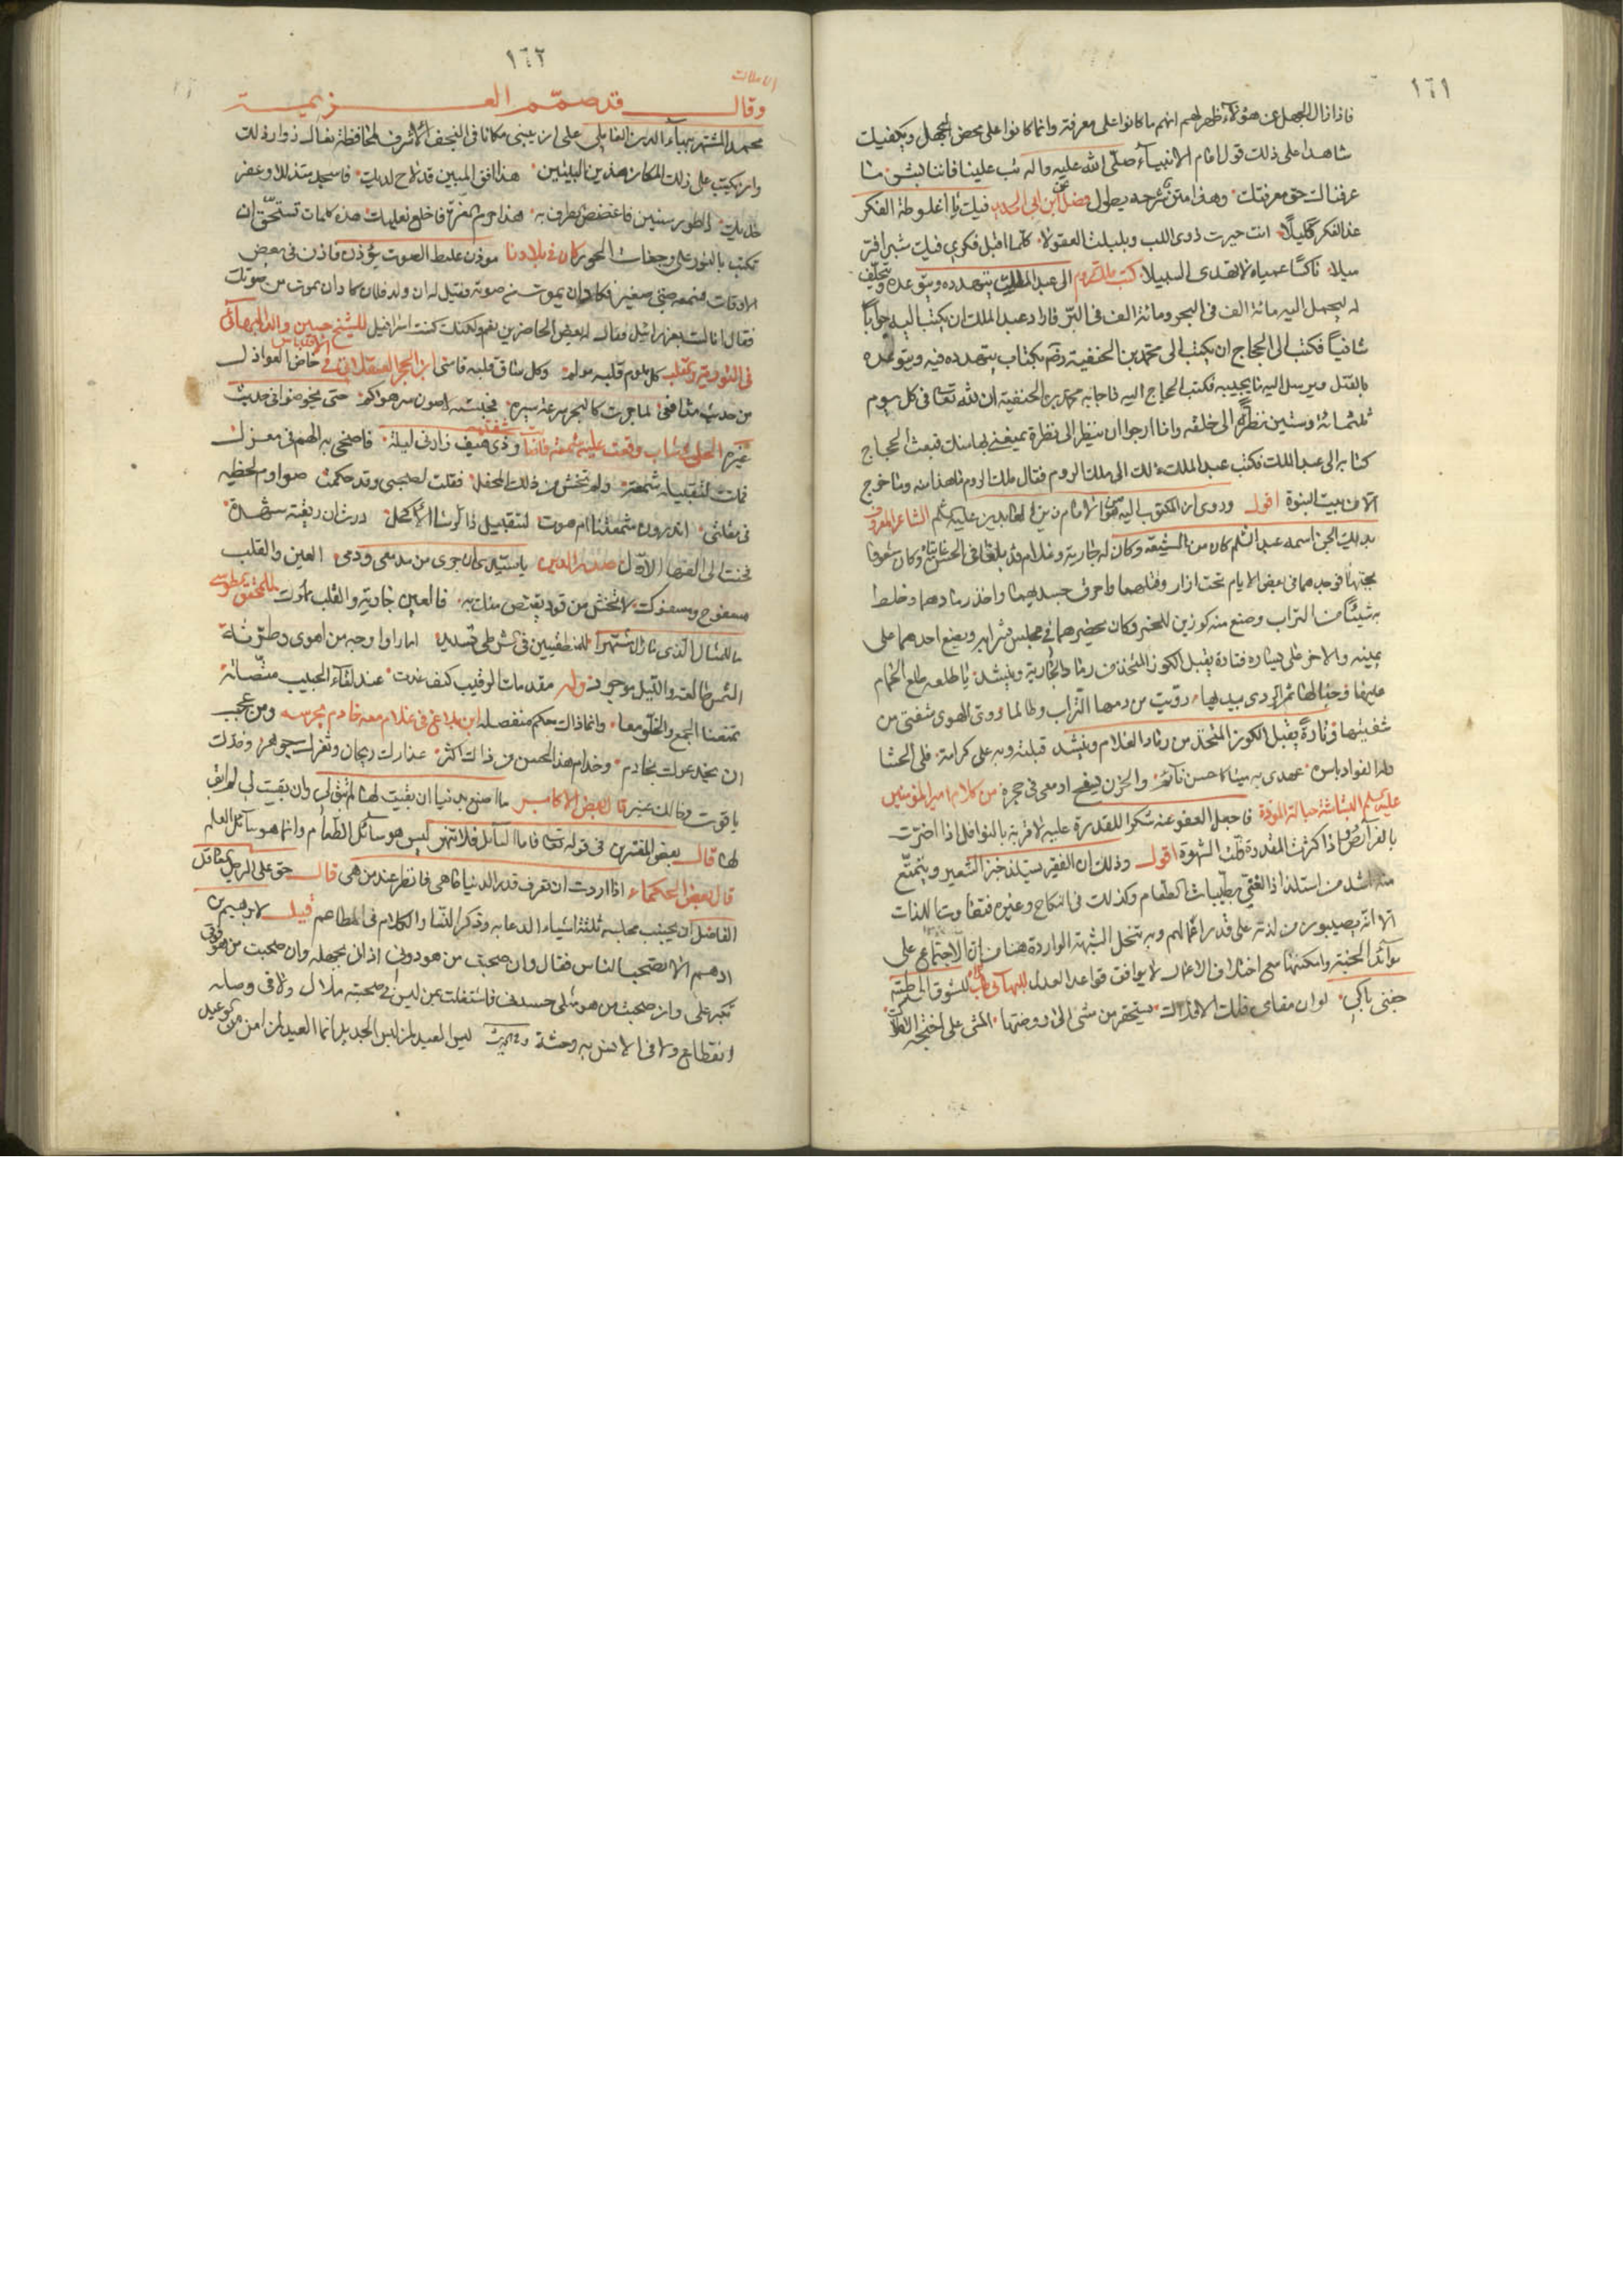 ١٦١
فاذا زال الجهل عن هؤلاء ظهر لهم انهم ما كانوا على معرفة وانما كانوا على محض الجهل ويكفيك
شاهدا على ذلك قول امام الانبياء صلى الله عليه واله تب علينا فاننا بشر ما
عرفناك حق معرفتك وهذا متن شرحه يطول فصل لابن ابى الحديد فيك يا اغلوطة الفكر
غدا الفكر كليلا انت حيرت ذوى اللب وبلبلت العقولا كلما اقبل فكرى فيك شبرا فر
ميلا ناكصا عمياء لا يهدى السبيلا كتب ملك الروم الى عبد الملك يتهدده ويتوعده ويحلف
له ليحمل اليه مائة الف فى البحر ومائة الف فى البر فاراد عبد الملك ان يكتب اليه جوابا
شافيا فكتب الى الحجاج ان يكتب الى محمد بن الحنفية رضه بكتاب يتهدده فيه ويتوعده
بالقتل ويرسل اليه ما يجيبه فكتب الحجاج اليه فاجابه محمد بن الحنفية ان لله تعالى فى كل يوم
ثلثمائة وستين نظرة الى خلقه وانا ارجوا ان ينظر الى نظرة يمنعنى بها منك فبعث الحجاج
كتابه الى عبد الملك فكتب عبد الملك ذلك الى ملك الروم فقال ملك الروم ما هذا منه وما خرج
الا من بيت النبوة اقول وروى ان المكتوب اليه هو الامام زين العابدين عليه السلم الشاعر المعروف
بديك الجن اسمه عبد السلم كان من الشيعة وكان له جارية وغلام قد بلغا فى الحسن وكان مشغوفا
بحبهما فوجدهما فى بعض الايام تحت ازار وقتلهما واحرق جسديهما واخذ رمادهما وخلط
به شيئا من التراب وصنع منه كوزين للخمر وكان يحضرهما فى مجلس شرابه ويضع احدهما على
يمينه والاخر على يساره فتارة يقبل الكوز المتخذ من رماد الجارية وينشد يا طلعة طلع الحمام
عليها وجنى لها ثمر الردى بيديها رويت من دمها التراب وطالما روى الهوى شفتى من
شفتيها وتارة يقبل الكوز المتخذ من رماد الغلام وينشد قبلته وبه على كرامة فلى الحشا
وله الفواد باسره عهدى به ميتا كاحسن نائم والحزن يسفح ادمعى فى حجره من كلام امير المؤمنين
عليه السلم البشاشة حبالة المودة فاجعل العفو عنه شكرا للقدرة عليه لا قربة بالنوافل اذا اضرت
بالفرائض اذا كثرت المقدرة قلت الشهوة اقول وذلك ان الفقير يستلذ خبز الشعير ويتمتع
منه اشد من استلذاذ الغنى بطيبات الطعام وكذلك فى النكاح وغيره
الا انه يصيبون من لذته على قدر اعمالهم وبه تنحل الشبهة الواردة هنا من ان الاجتماع على
موائد الجنة وامكنتها مع اختلاف الاعمال لا يوافق قواعد العدل للبهائى
لو ان مقاى فلك الافلاك يستحقر من مشى الى روضتها المشى على اجنحة الاملاك
١٦٢
وقال قد صمم العزيمة
محمد المشتهر ببهاء الدين العاملى على ان يبنى مكانا فى النجف الاشرف لمحافظة نعال زوار ذلك
وان يكتب على ذلك المكان هذين البيتين هذا الافق المبين قد لاح لديك فاسجد متذللا وعفر
خديك ذا طور سينين فاغضض الطرف به هذا حرم العزة فاخلع نعليك هذه كلمات تستحق ان
تكتب بالنور على وجنات الحور كان فى بلادنا موذن غليظ الصوت يؤذن فاذن فى بعض
الاوقات فسمعه صبى صغير فكاد ان يموت من صوته فقيل له ان ولد فلان كاد ان يموت من صوتك
فقال انا لست بعزرائيل فقال له بعض الحاضرين نعم ولكنك كنت اسرافيل للشيخ حسين والد البهائى
فى التورية والقلب كل ملوم قلبه مولم وكل ساق قلبه قاسى ابن الحجر العسقلانى فى الاقتباس خاض العواذل
من حديث مدامعى لما جرت كالبحر سرعة سيره فحبسته لاصون سر هواكم حتى يخوضوا فى حديث
غيره الحلى فى شاب وقعت عليه شمعة فاصابت شفته وذى هيف زارنى ليلة فاضحى به الهم فى معزل
فمالت لتقبيله شمعة ولم تخش من ذلك المحفل فقلت لصحبى وقد حكمت صوارم لحظيه
فى مقلتى اتدرون شمعتنا لم هوت لتقبيل ذا الرشا الاكحل درت ان ريقته شهدة
فحنت الى الفها الاول لصدر الدين يا سيدى ان جرى من مدمعى ودمى العين والقلب
مسفوح ومسفوك لا تخش من قود يقتص منك به فالعين جارية والقلب مملوك للمحقق الطوسى
ما للمثال الذى ما زال مشتهرا للمنطقيين فى الشرطى تسديد اما راوا وجه من اهوى وطرته
الشمس طالعة والليل موجود وله مقدمات الرقيب كيف غدت عند لقاء الحبيب متصلة
تمنعنا الجمع والخلو معا وانما ذاك حكم منفصلة ابن الدباغ فى غلام معه خادم يحرسه ومن عجب
ان يحرسوك بخادم وخدام هذا الحسن من ذاك اكثر عذارك ريحان وثغرك جوهر وخدك
ياقوت وخالك عنبر قال بعض الاكابر ما اصنع بدنيا ان بقيت لها لم تبق لى وان بقيت لى لم ابق
لها قال بعض المفسرين فى قوله تعالى فاما السائل فلا تنهر ليس هو سائل الطعام وانما هو سائل العلم
قال بعض الحكماء اذا اردت ان تعرف قدر الدنيا فانظر عند من هى قال حق على الرجل العاقل
الفاضل ان يجنب مجلسه ثلثة اشياء الدعابة وذكر النساء والكلام فى المطاعم قيل لابرهيم بن
ادهم الا تصحب الناس فقال ان صحبت من هو دونى اذانى بجهله وان صحبت من هو فوقى
تكبر على وان صحبت من هو مثلى حسدنى فاشتغلت بمن ليس فى صحبته ملال ولا فى وصله
انقطاع ولا فى الانس به وحشة ليس العيد لمن لبس الجديد انما العيد لمن امن من الوعيد